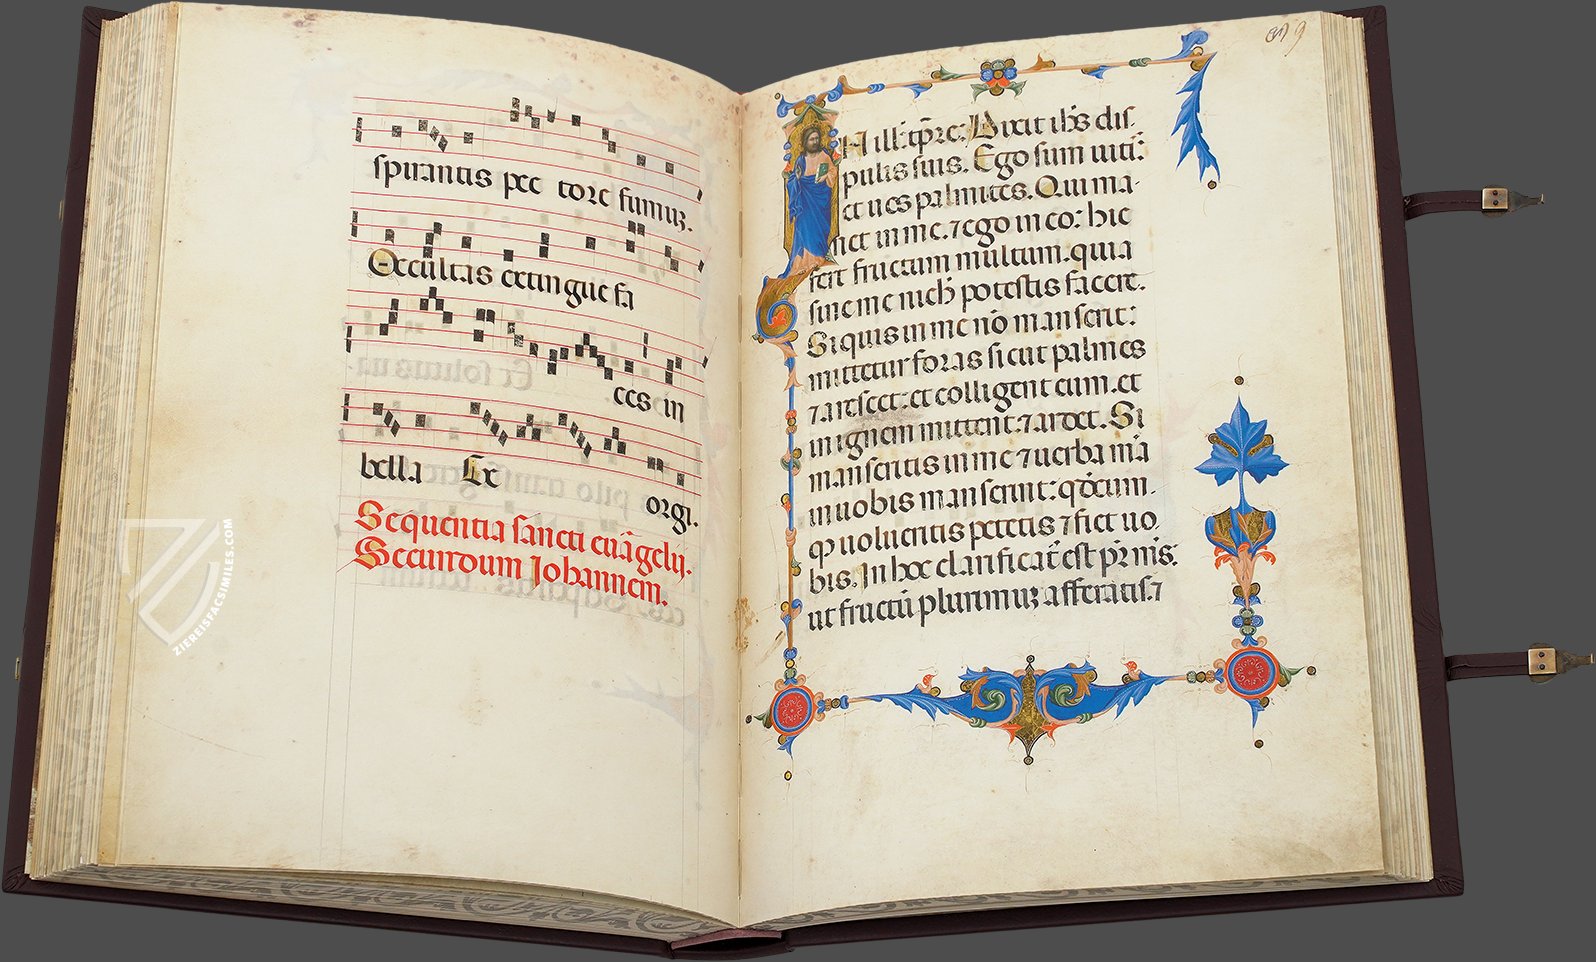 spirantis pec tore fumuz.
Occultas extingue fa
ces in
bella Ex
orgi.
Sequentia sancti euãgelij.
Secundum Johannem.
ZIEREISFACSIMILES.COM
9
N ill: tp̃re: Dixit ihs̃ dis
pulis suis. Ego sum uitis:
et uos palmites. Qui ma
net in me. ⁊ ego in eo: hic
fert fructum multum. quia
sine me nich̃ potestis facere.
Si quis in me nõ manserit:
mittetur foras sicut palmes
⁊ aresect: et colligent eum. et
in ignem mittent. ⁊ ardet. Si
manseritis in me ⁊ uerba mã
in uobis manserint: qđcum
qꝫ uolueritis petetis ⁊ fiet uo
bis. In hoc clarificat̃ est pr̃ m̃s.
ut fructũ plurimuz afferatis. ⁊